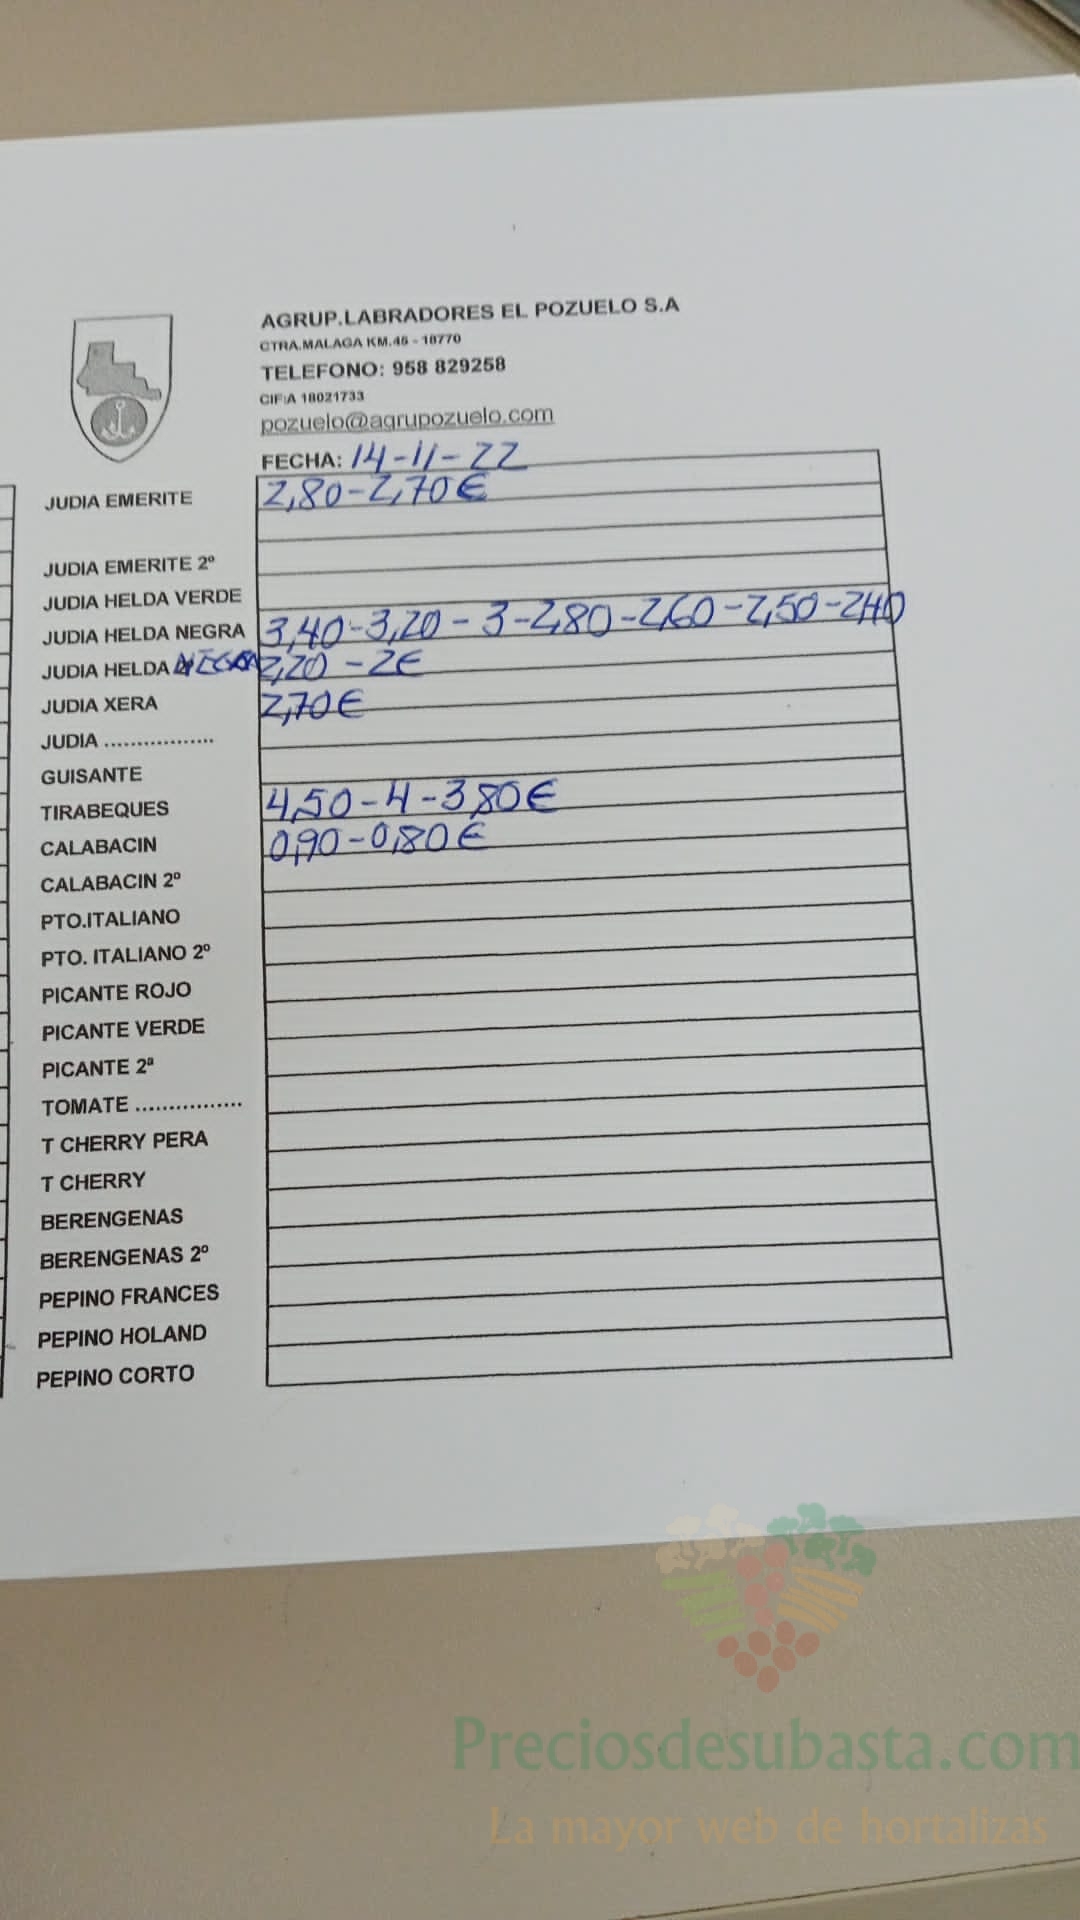 AGRUP.LABRADORES EL POZUELO S.A
CTRA.MALAGA KM.46 - 18770
TELEFONO: 958 829258
CIF:A 18021733
pozuelo@agrupozuelo.com
FECHA: 14-11-22
JUDIA EMERITE 2,80-2,70€
JUDIA EMERITE 2º
JUDIA HELDA VERDE
JUDIA HELDA NEGRA 3,40-3,20-3-2,80-2,60-2,50-2,40
JUDIA HELDA NEGRA 2,20-2€
JUDIA XERA 2,70€
JUDIA .................
GUISANTE
TIRABEQUES 4,50-4-3,80€
CALABACIN 0,90-0,80€
CALABACIN 2º
PTO.ITALIANO
PTO. ITALIANO 2º
PICANTE ROJO
PICANTE VERDE
PICANTE 2ª
TOMATE ................
T CHERRY PERA
T CHERRY
BERENGENAS
BERENGENAS 2º
PEPINO FRANCES
PEPINO HOLAND
PEPINO CORTO
Preciosdesubasta.com
La mayor web de hortalizas